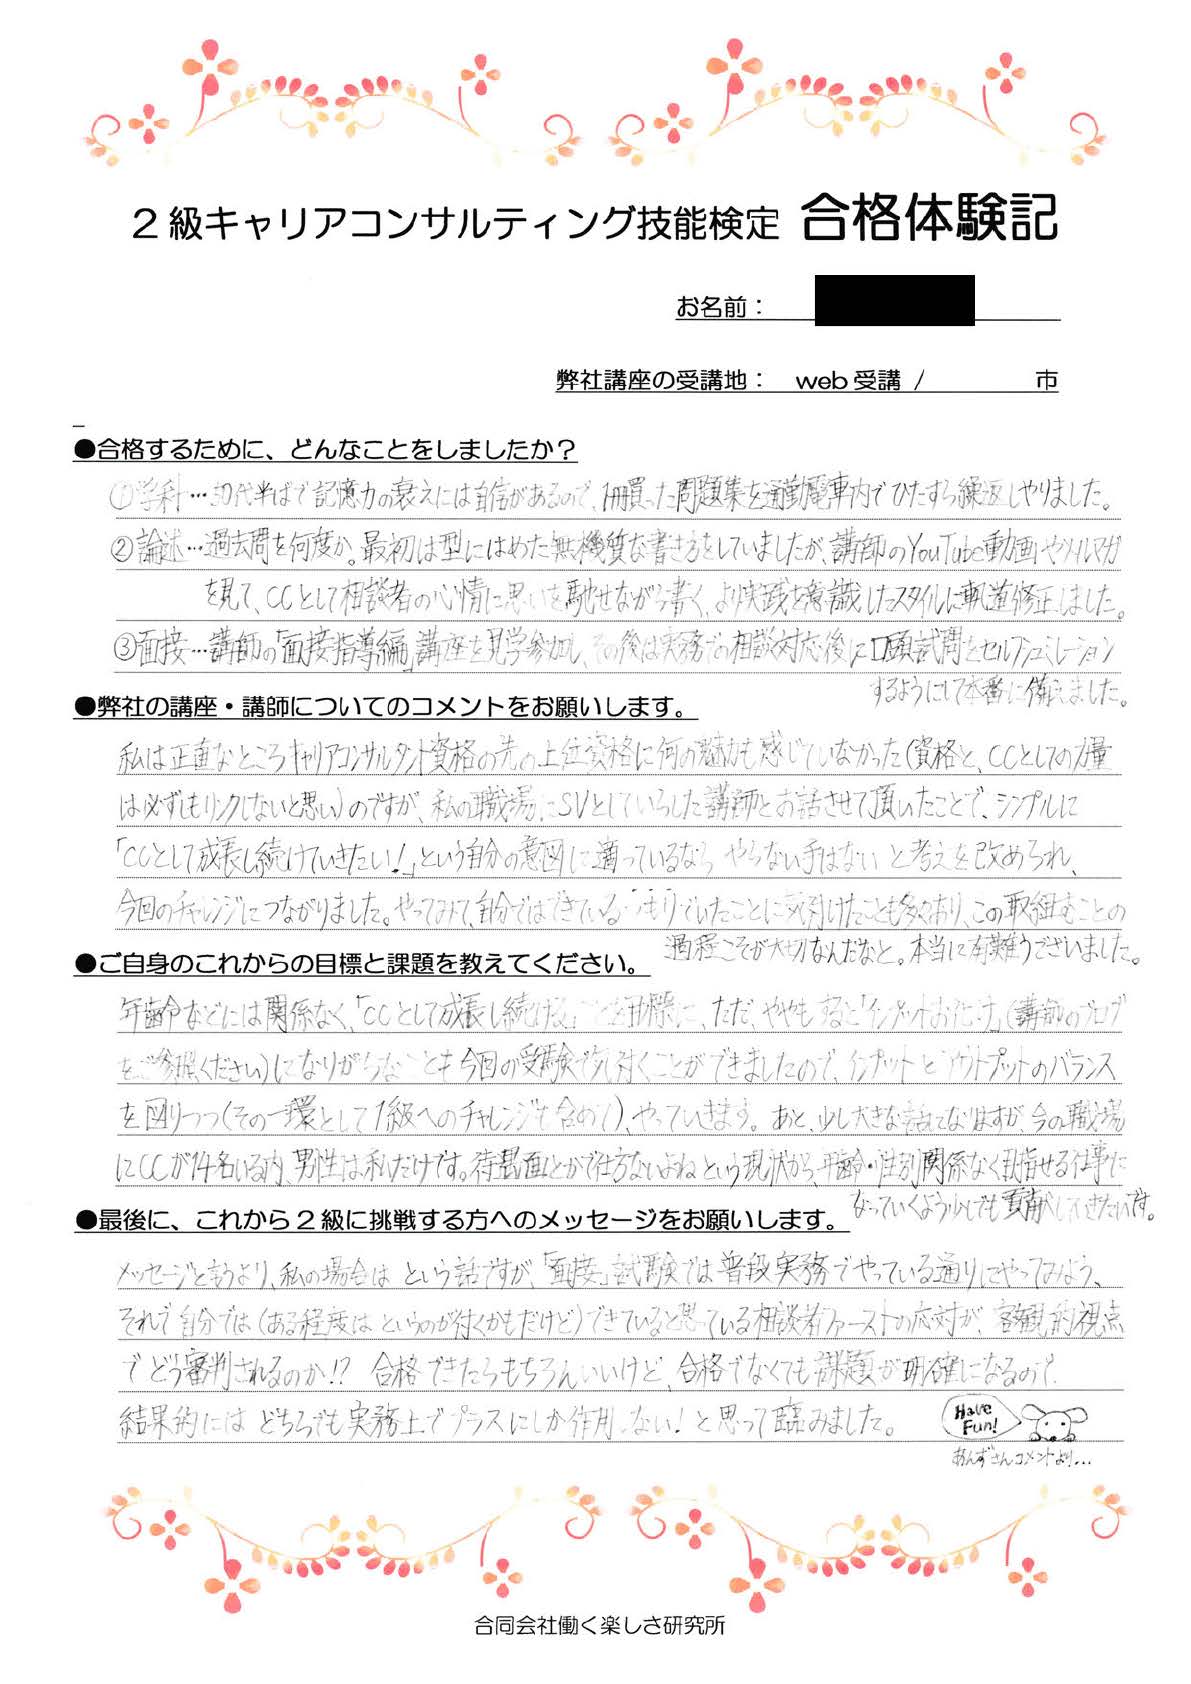 2級キャリアコンサルティング技能検定 合格体験記
お名前：
弊社講座の受講地： web受講 / 市
●合格するために、どんなことをしましたか？
①学科…50代半ばで記憶力の衰えには自信があるので、1冊買った問題集を通勤電車内でひたすら繰返しやりました。
②論述…過去問を何度か。最初は型にはめた無機質な書き方をしていましたが、講師のYouTube動画やメルマガ
を見て、CCとして相談者の心情に思いを馳せながら書く、より実践を意識したスタイルに軌道修正しました。
③面接…講師の「面接指導編」講座を見学参加し、その後は実務での相談対応後に口頭試問をセルフシュミレーション
するようにして本番に備えました。
●弊社の講座・講師についてのコメントをお願いします。
私は正直なところキャリアコンサルタント資格の先の上位資格に何の魅力も感じていなかった(資格と、CCとしての力量
は必ずしもリンクしないと思い)のですが、私の職場にSVとしていらした講師とお話させて頂いたことで、シンプルに
「CCとして成長し続けていきたい！」という自分の意図に適っているなら やらない手はない と考えを改められ、
今回のチャレンジにつながりました。やってみて、自分ではできているつもりでいたことに気付けたことも多々あり、この取組むことの
過程こそが大切なんだなと。本当に有難うございました。
●ご自身のこれからの目標と課題を教えてください。
年齢などには関係なく、「CCとして成長し続ける」ことを目標に、ただ、ややもすると「インプットおばけ」(講師のブログ
をご参照ください)になりがちなことも今回の受験で気付くことができましたので、インプットとアウトプットのバランス
を図りつつ(その一環として1級へのチャレンジも含めて)、やっていきます。あと、少し大きな話になりますが、今の職場
にCCが14名いる内、男性は私だけです。待遇面とかで仕方ないよねという現状から、年齢・性別関係なく目指せる仕事に
なっていくよう少しでも貢献していきたいです。
●最後に、これから2級に挑戦する方へのメッセージをお願いします。
メッセージと言うより、私の場合は という話ですが、「面接」試験では普段実務でやっている通りにやってみよう、
それで自分では(ある程度は というのが付くかもだけど)できていると思っている相談者ファーストの応対が、客観的視点
でどう審判されるのか!? 合格できたらもちろんいいけど、合格でなくても課題が明確になるので、
結果的には どちらでも実務上でプラスにしか作用しない！と思って臨みました。
Have
Fun!
あんずさんコメントより...
合同会社働く楽しさ研究所